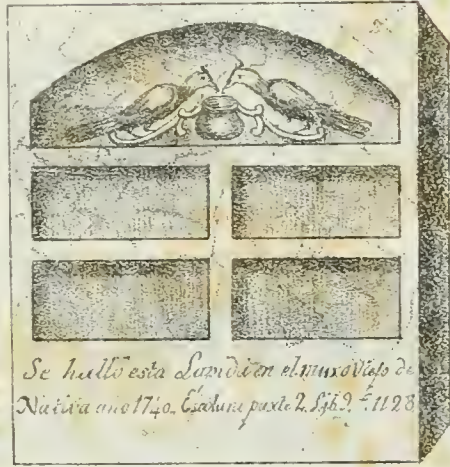 Se halló esta Lapida en el muro Viejo de
Xativa año 1740. Escolano parte 2. Lib. 9. f. 1128